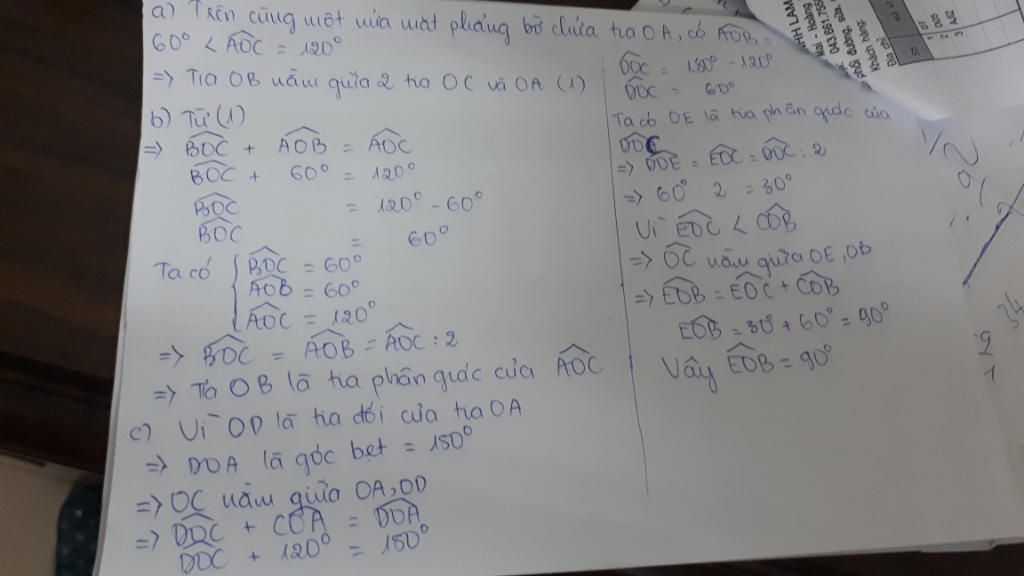 a) Trên cùng một nửa mặt phẳng bờ chứa tia OA, có AOB =
60° < AOC = 120°
=> Tia OB nằm giữa 2 tia OC và OA (1)
b) Từ (1)
=> BOC + AOB = AOC
BOC + 60° = 120°
BOC = 120° - 60°
BOC = 60°
Ta có { BOC = 60°
AOB = 60°
AOC = 120°
=> BOC = AOB = AOC : 2
=> Tia OB là tia phân giác của AOC
c) Vì OD là tia đối của tia OA
=> DOA là góc bẹt = 180°
=> OC nằm giữa OA, OD
=> DOC + COA = DOA
DOC + 120° = 180°
DOC = 180° - 120°
DOC = 60°
Ta có OE là tia phân giác của
DOC
=> DOE = EOC = DOC : 2
=> 60° : 2 = 30°
Vì EOC < COB
=> OC nằm giữa OE, OB
=> EOB = EOC + COB
EOB = 30° + 60° = 90°
Vậy EOB = 90°